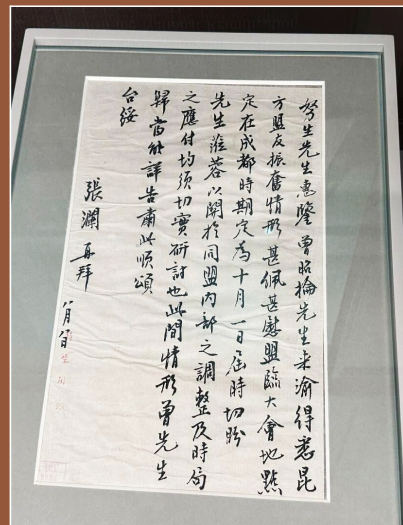 努生先生惠鑒曾昭掄先生来渝得悉昆
方盟友振奮情形甚佩甚慰盟臨大會地點
定在成都時期定為十月一日屆時切盼
先生蒞蓉以關於同盟内部之調整及時局
之應付均須切實研討也此間情形曾先生
歸當能詳告肅此順頌
台綏
張瀾再拜
八月